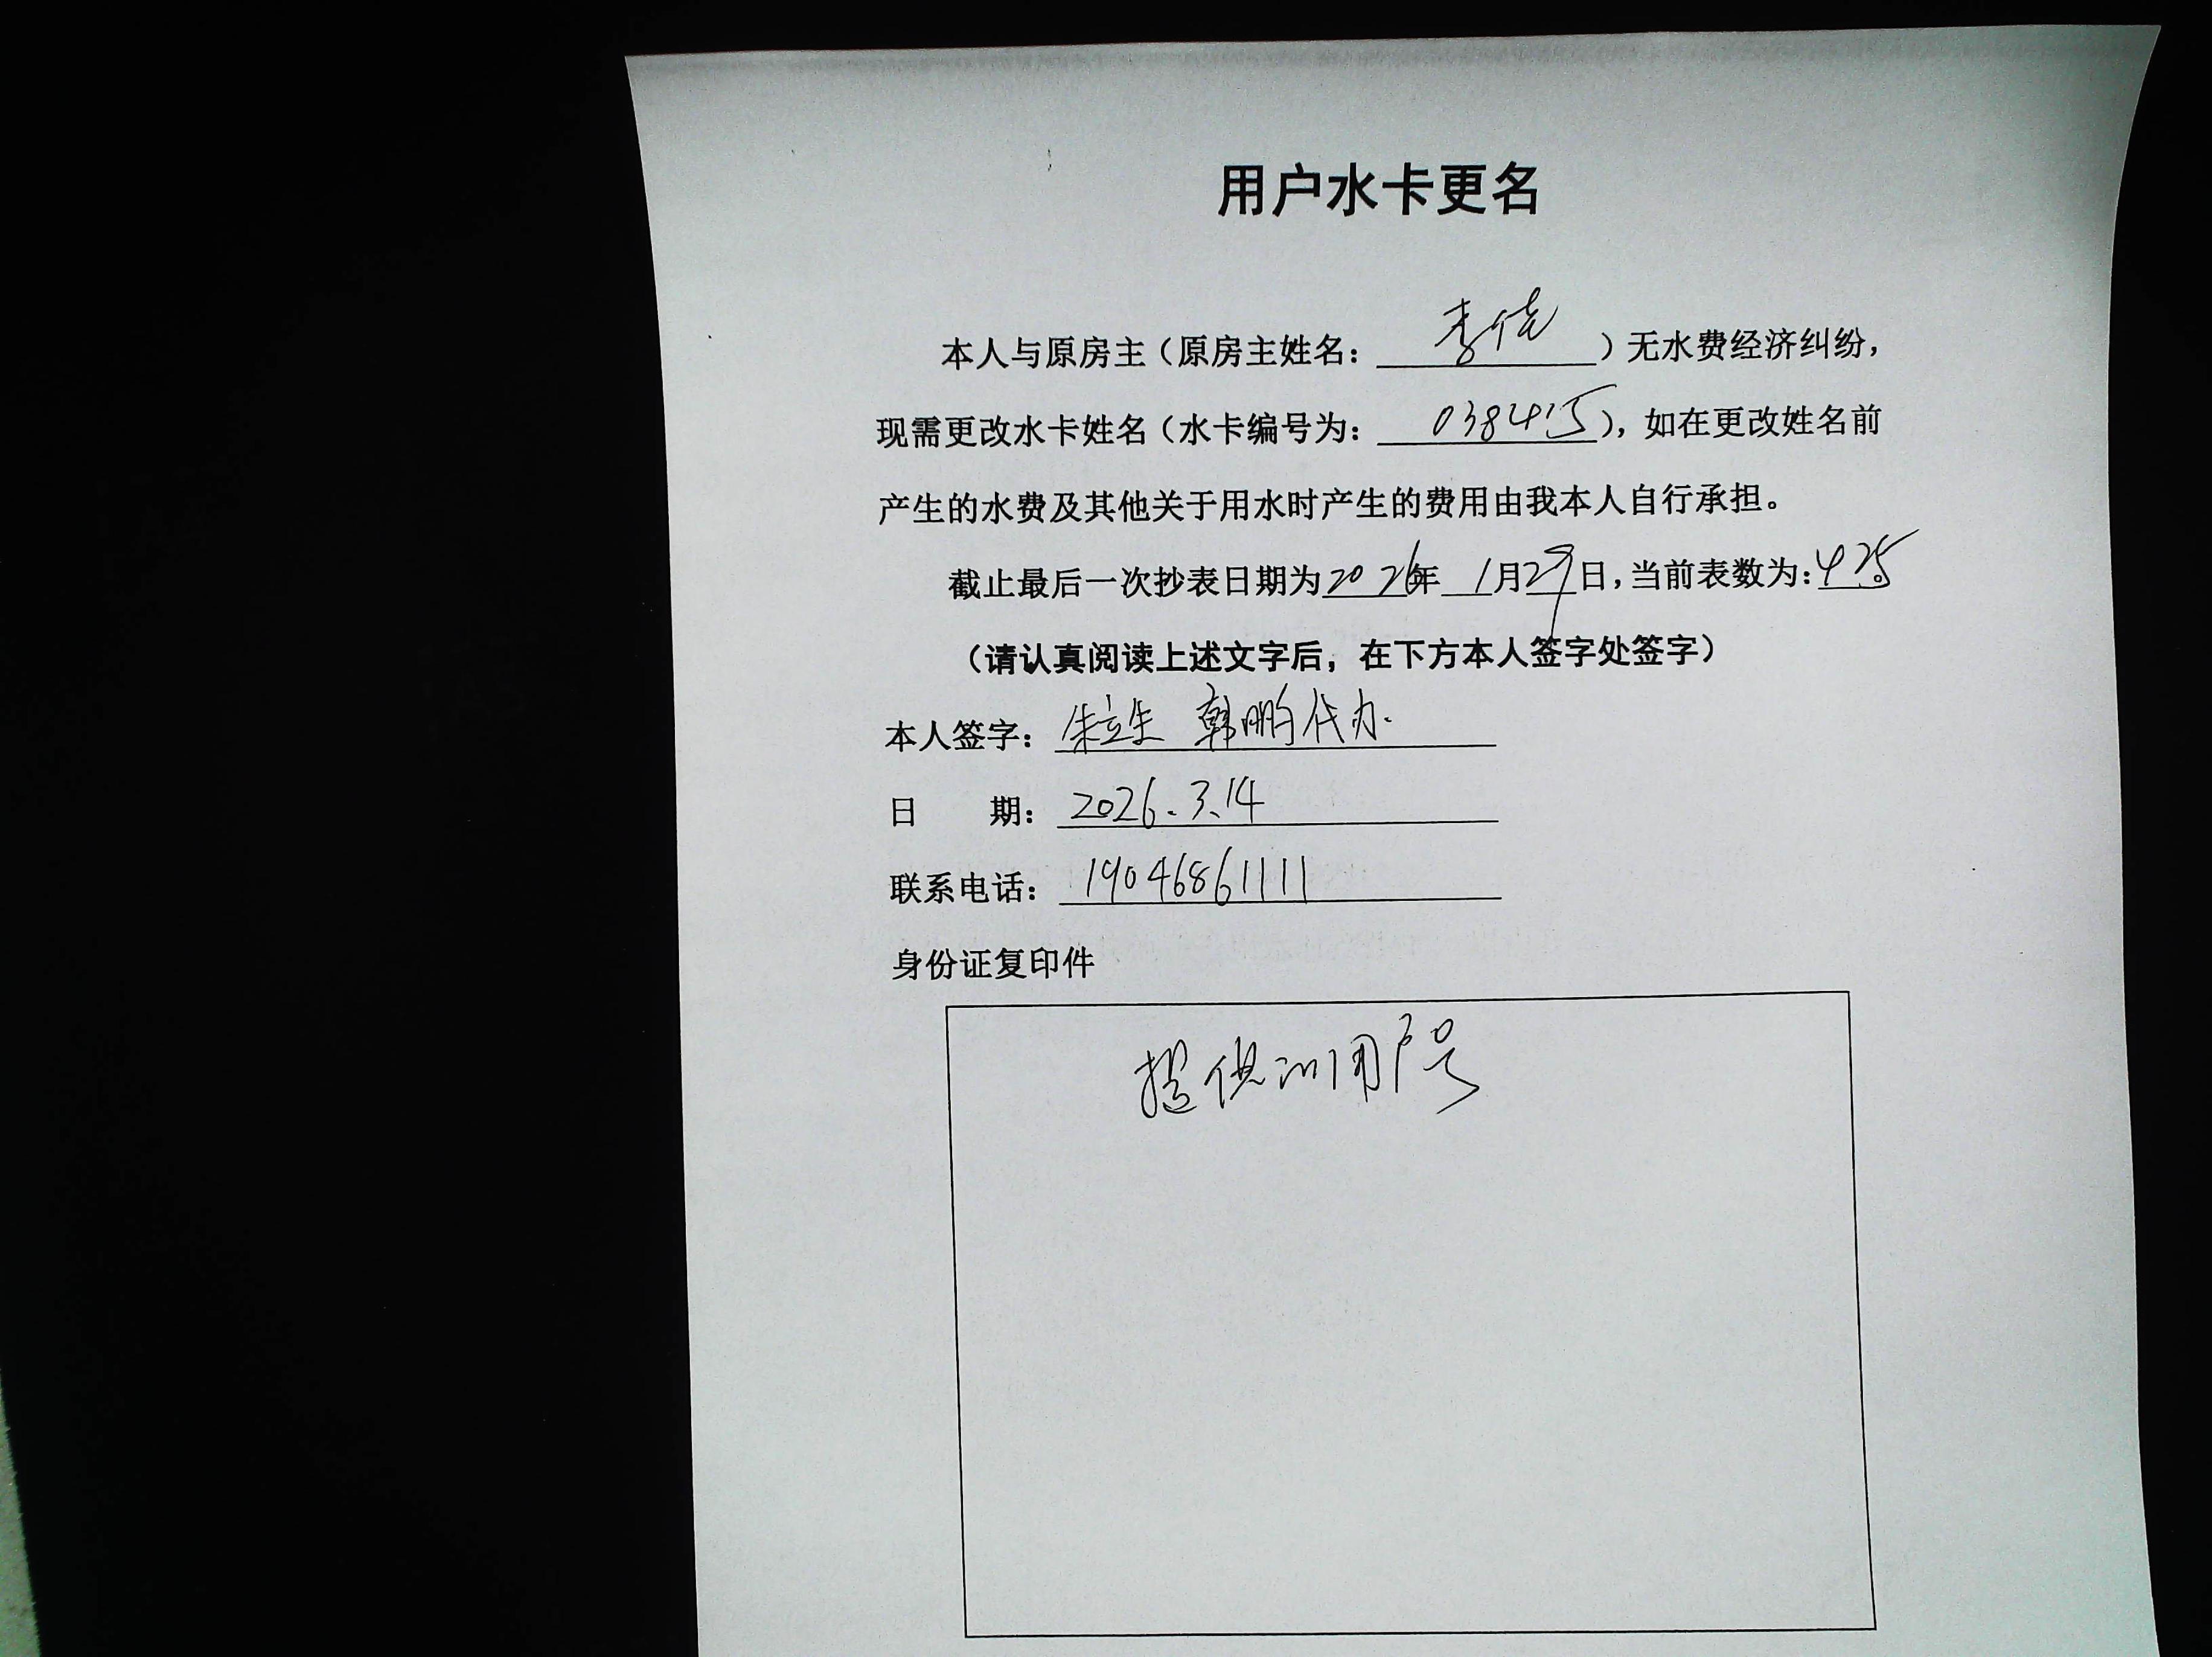 用户水卡更名
本人与原房主（原房主姓名：李倩）无水费经济纠纷，
现需更改水卡姓名（水卡编号为：038415），如在更改姓名前
产生的水费及其他关于用水时产生的费用由我本人自行承担。
截止最后一次抄表日期为2026年1月29日，当前表数为：425
（请认真阅读上述文字后，在下方本人签字处签字）
本人签字：朱立生 韩鹏代办.
日 期：2026.3.14
联系电话：19046861111
身份证复印件
提供 用户号